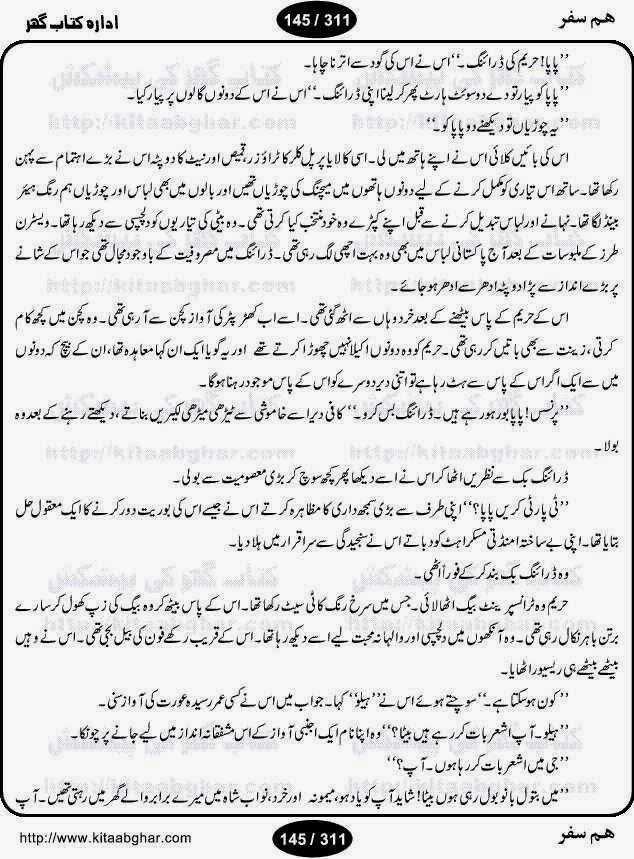 ہم سفر 145 / 311 ادارہ کتاب گھر
’’پاپا! حریم کی ڈرائنگ۔‘‘ اس نے اس کی گود سے اترنا چاہا۔
’’پاپا کو پیار تو دے دو سوئٹ ہارٹ پھر کر لینا اپنی ڈرائنگ۔‘‘ اس نے اس کے دونوں گالوں پر پیار کیا۔
’’یہ چوڑیاں تو دیکھنے دو پاپا کو۔‘‘
اس کی بائیں کلائی اس نے اپنے ہاتھ میں لی۔ اسی کا لایا پرپل کلر کا ٹراؤزر، قمیص اور نیٹ کا دوپٹہ اس نے بڑے اہتمام سے پہن
رکھا تھا۔ ساتھ اس تیاری کو مکمل کرنے کے لیے دونوں ہاتھوں میں میچنگ کی چوڑیاں تھیں اور بالوں میں بھی لباس اور چوڑیاں ہم رنگ ہیئر
بینڈ لگا تھا۔ نہانے اور لباس تبدیل کرنے سے قبل اپنے کپڑے وہ خود منتخب کیا کرتی تھی۔ وہ بیٹی کی تیاریوں کو دلچسپی سے دیکھ رہا تھا۔ ویسٹرن
طرز کے ملبوسات کے بعد آج پاکستانی لباس میں بھی وہ بہت اچھی لگ رہی تھی۔ ڈرائنگ میں مصروفیت کے باوجود مجال تھی جو اس کے شانے
پر بڑے انداز سے پڑا دوپٹہ ادھر سے ادھر ہو جائے۔
اس کے حریم کے پاس بیٹھنے کے بعد خرد وہاں سے اٹھ گئی تھی۔ اسے اب کھڑ پٹر کی آواز کچن سے آ رہی تھی۔ وہ کچن میں کچھ کام
کرتی، زینت سے بھی باتیں کر رہی تھی۔ حریم کو وہ دونوں اکیلا نہیں چھوڑا کرتے تھے اور یہ گویا ایک ان کہا معاہدہ تھا، ان کے بیچ کہ دونوں
میں سے ایک اگر اس کے پاس سے ہٹ رہا ہے تو اتنی دیر دوسرے کو اس کے پاس موجود رہنا ہوگا۔
’’پرنسس! پاپا بور ہو رہے ہیں۔ ڈرائنگ بس کرو۔‘‘ کافی دیر اسے خاموشی سے ٹیڑھی میڑھی لکیریں بناتے، دیکھتے رہنے کے بعد وہ
بولا۔
ڈرائنگ بک سے نظریں اٹھا کر اس نے اسے دیکھا پھر کچھ سوچ کر بڑی معصومیت سے بولی۔
’’ٹی پارٹی کریں پاپا؟‘‘ اپنی طرف سے بڑی سمجھ داری کا مظاہرہ کرتے اس نے جیسے اس کی بوریت دور کرنے کا ایک معقول حل
بتایا تھا۔ اپنی بے ساختہ امنڈتی مسکراہٹ کو دباتے اس نے سنجیدگی سے سر اقرار میں ہلا دیا۔
وہ ڈرائنگ بک بند کر کے فوراً اٹھی۔
حریم وہ ٹرانسپیرنٹ بیگ اٹھا لائی۔ جس میں سرخ رنگ کا ٹی سیٹ رکھا تھا۔ اس کے پاس بیٹھ کر وہ بیگ کی زپ کھول کر سارے
برتن باہر نکال رہی تھی۔ وہ آنکھوں میں دلچسپی اور والہانہ محبت لیے اسے دیکھ رہا تھا۔ اس کے قریب رکھے فون کی بیل بجی تھی۔ اس نے وہیں
بیٹھے بیٹھے ہی ریسیور اٹھایا۔
’’کون ہو سکتا ہے۔‘‘ سوچتے ہوئے اس نے ’’ہیلو‘‘ کہا۔ جواب میں اس نے کسی عمر رسیدہ عورت کی آواز سنی۔
’’ہیلو۔ آپ اشعر بات کر رہے ہیں بیٹا؟‘‘ وہ اپنا نام ایک اجنبی آواز کے اس مشفقانہ انداز میں لیے جانے پر چونکا۔
’’جی میں اشعر بات کر رہا ہوں۔ آپ؟‘‘
’’میں بتول بانو بول رہی ہوں بیٹا! شاید آپ کو یاد ہو، میمونہ اور خرد، نواب شاہ میں میرے برابر والے گھر میں رہتی تھیں۔ آپ
http://www.kitaabghar.com 145 / 311 ہم سفر